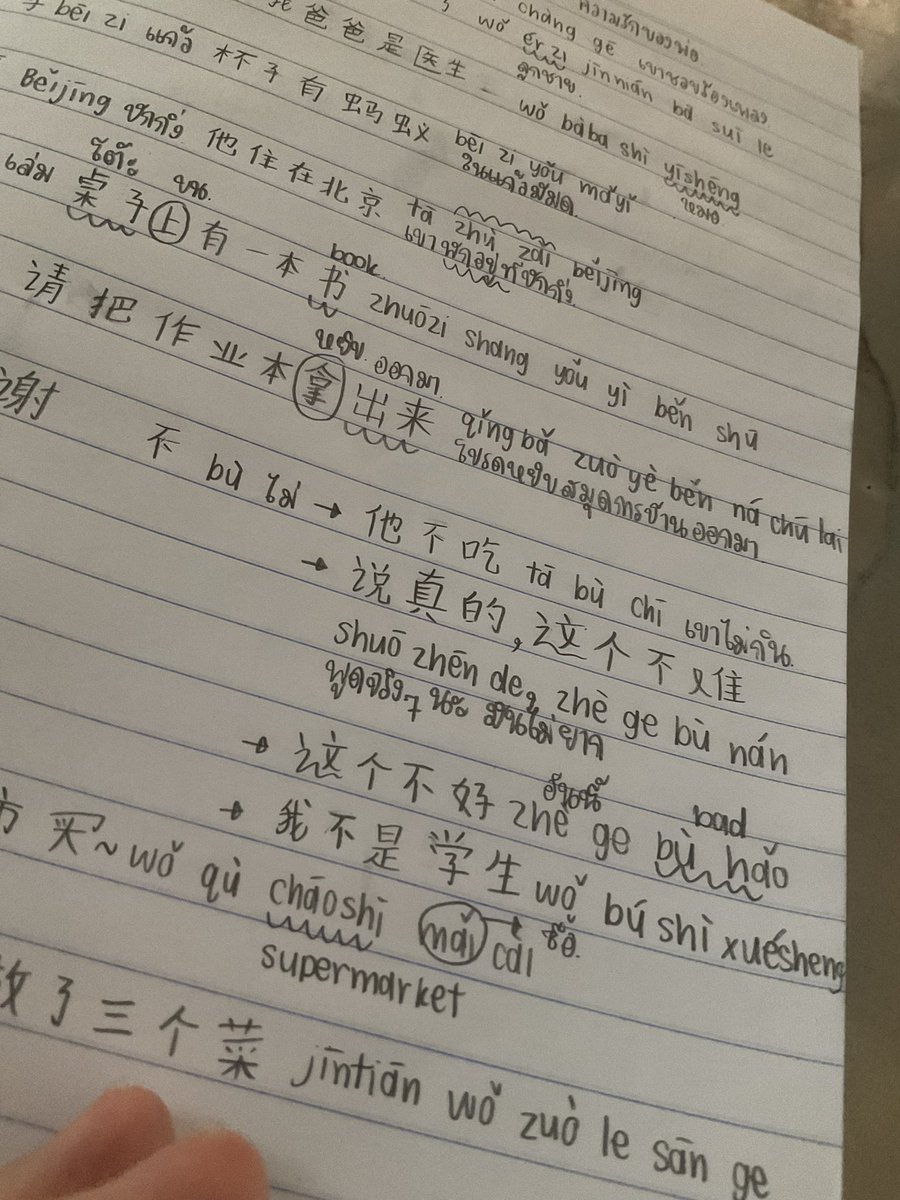 ความรักของพ่อ
chàng gē เขาชอบร้องเพลง
wǒ ér zi jīnnián bā suì le
ลูกชาย.
爸爸是医生 - wǒ bàba shì yīshēng
หมอ
bēi zi แก้ว 杯子有蚂蚁 bēi zi yǒu mǎyǐ
ในแก้วมีมด
Běijīng ปักกิ่ง 他住在北京 tā zhù zài běijīng
เขาพักอยู่ที่ปักกิ่ง
เล่ม โต๊ะ บน. book.
桌子上有一本书 zhuōzi shang yǒu yì běn shū
หยิบ. ออกมา.
请把作业本拿出来 qǐng bǎ zuò yè běn ná chū lai
โปรดหยิบสมุดการบ้านออกมา
谢
不 bù ไม่ → 他不吃 tā bù chī เขาไม่กิน.
→ 说真的,这个不难
shuō zhēn de, zhè ge bù nán
พูดจริงๆ นะ มันไม่ยาก
→ 这个不好 zhè ge bù hǎo
อันนี้ bad
→ 我不是学生 wǒ bú shì xuésheng
买~ wǒ qù chāoshì mǎi cài → ซื้อ.
supermarket
了三个菜 jīntiān wǒ zuò le sān ge